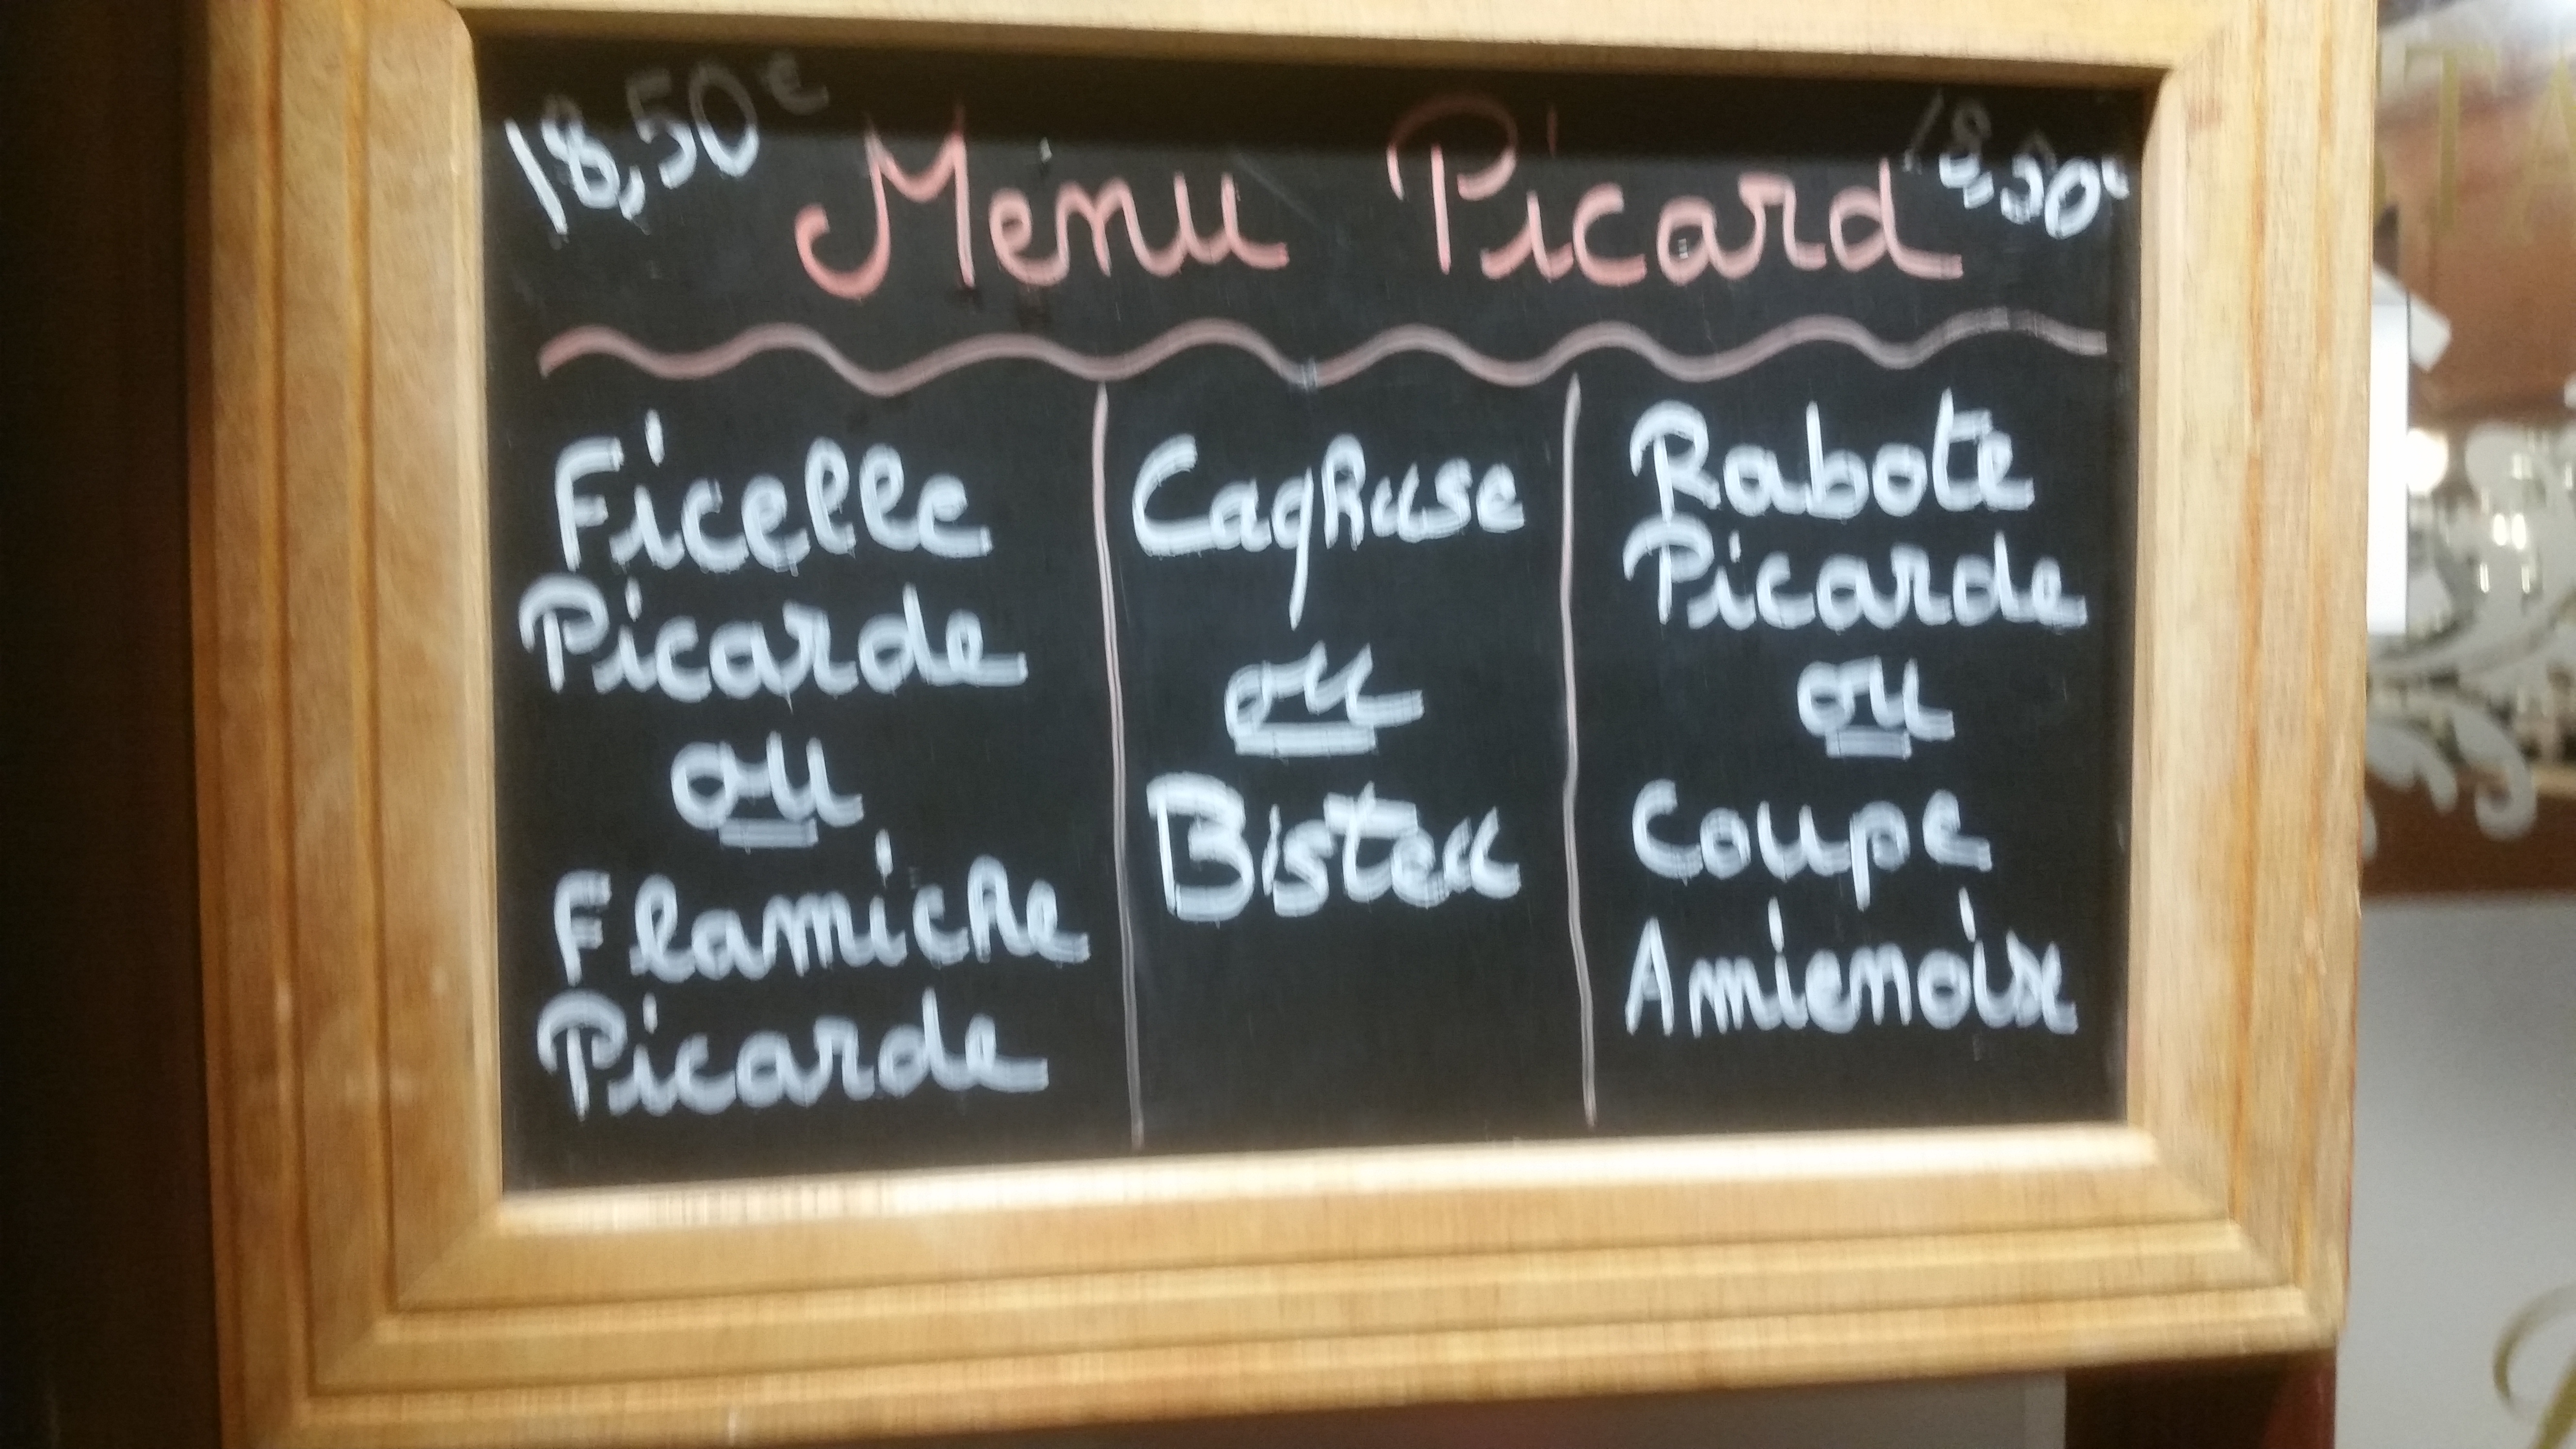 18,50€ Menu Picard 18,50€
Ficelle
Picarde
ou
Flamiche
Picarde
Caqhuse
ou
Bisteu
Rabote
Picarde
ou
Coupe
Amienoise